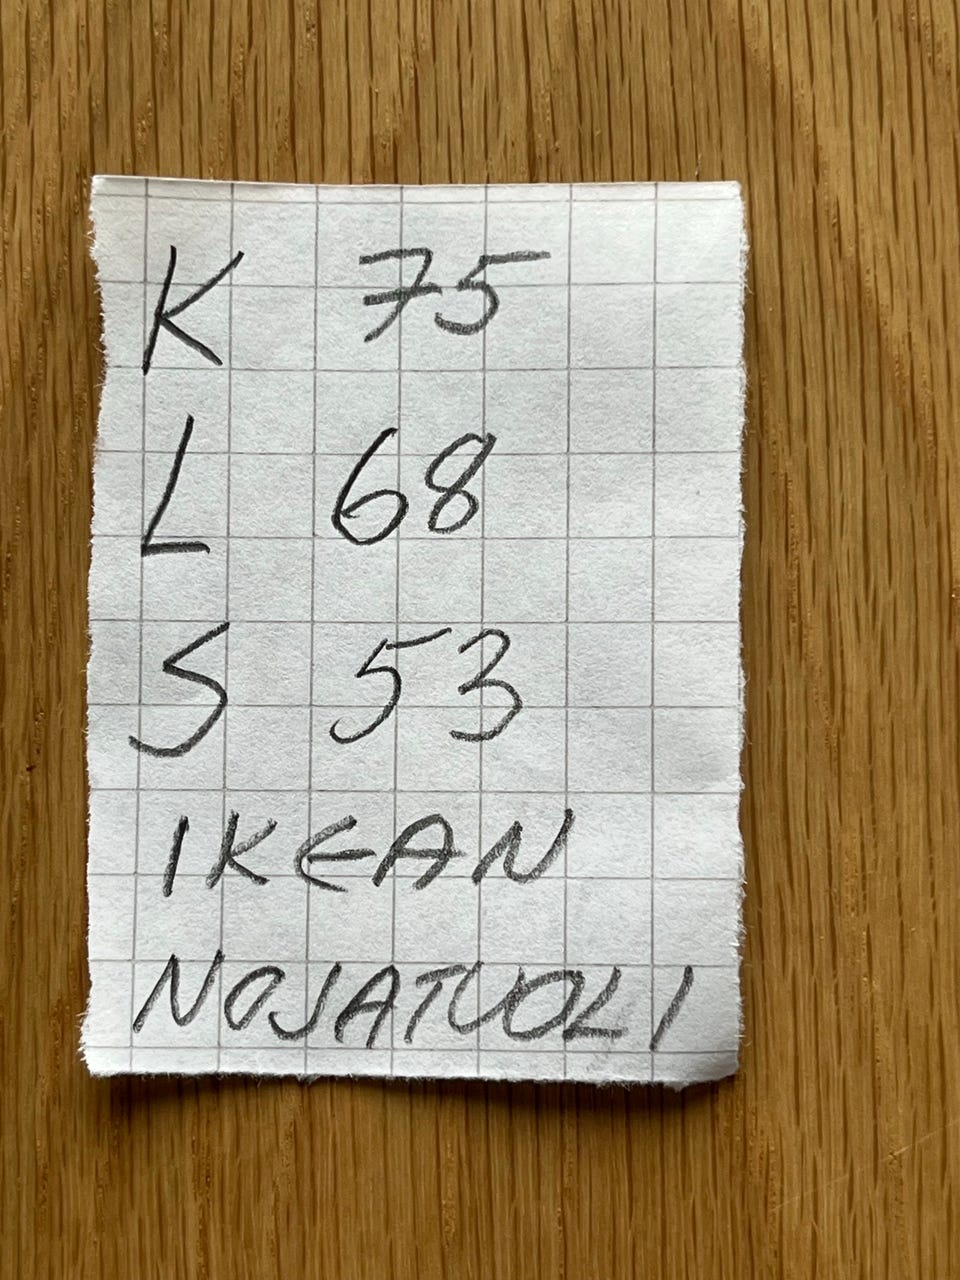 K 75
L 68
S 53
IKEAN
NOJATUOLI